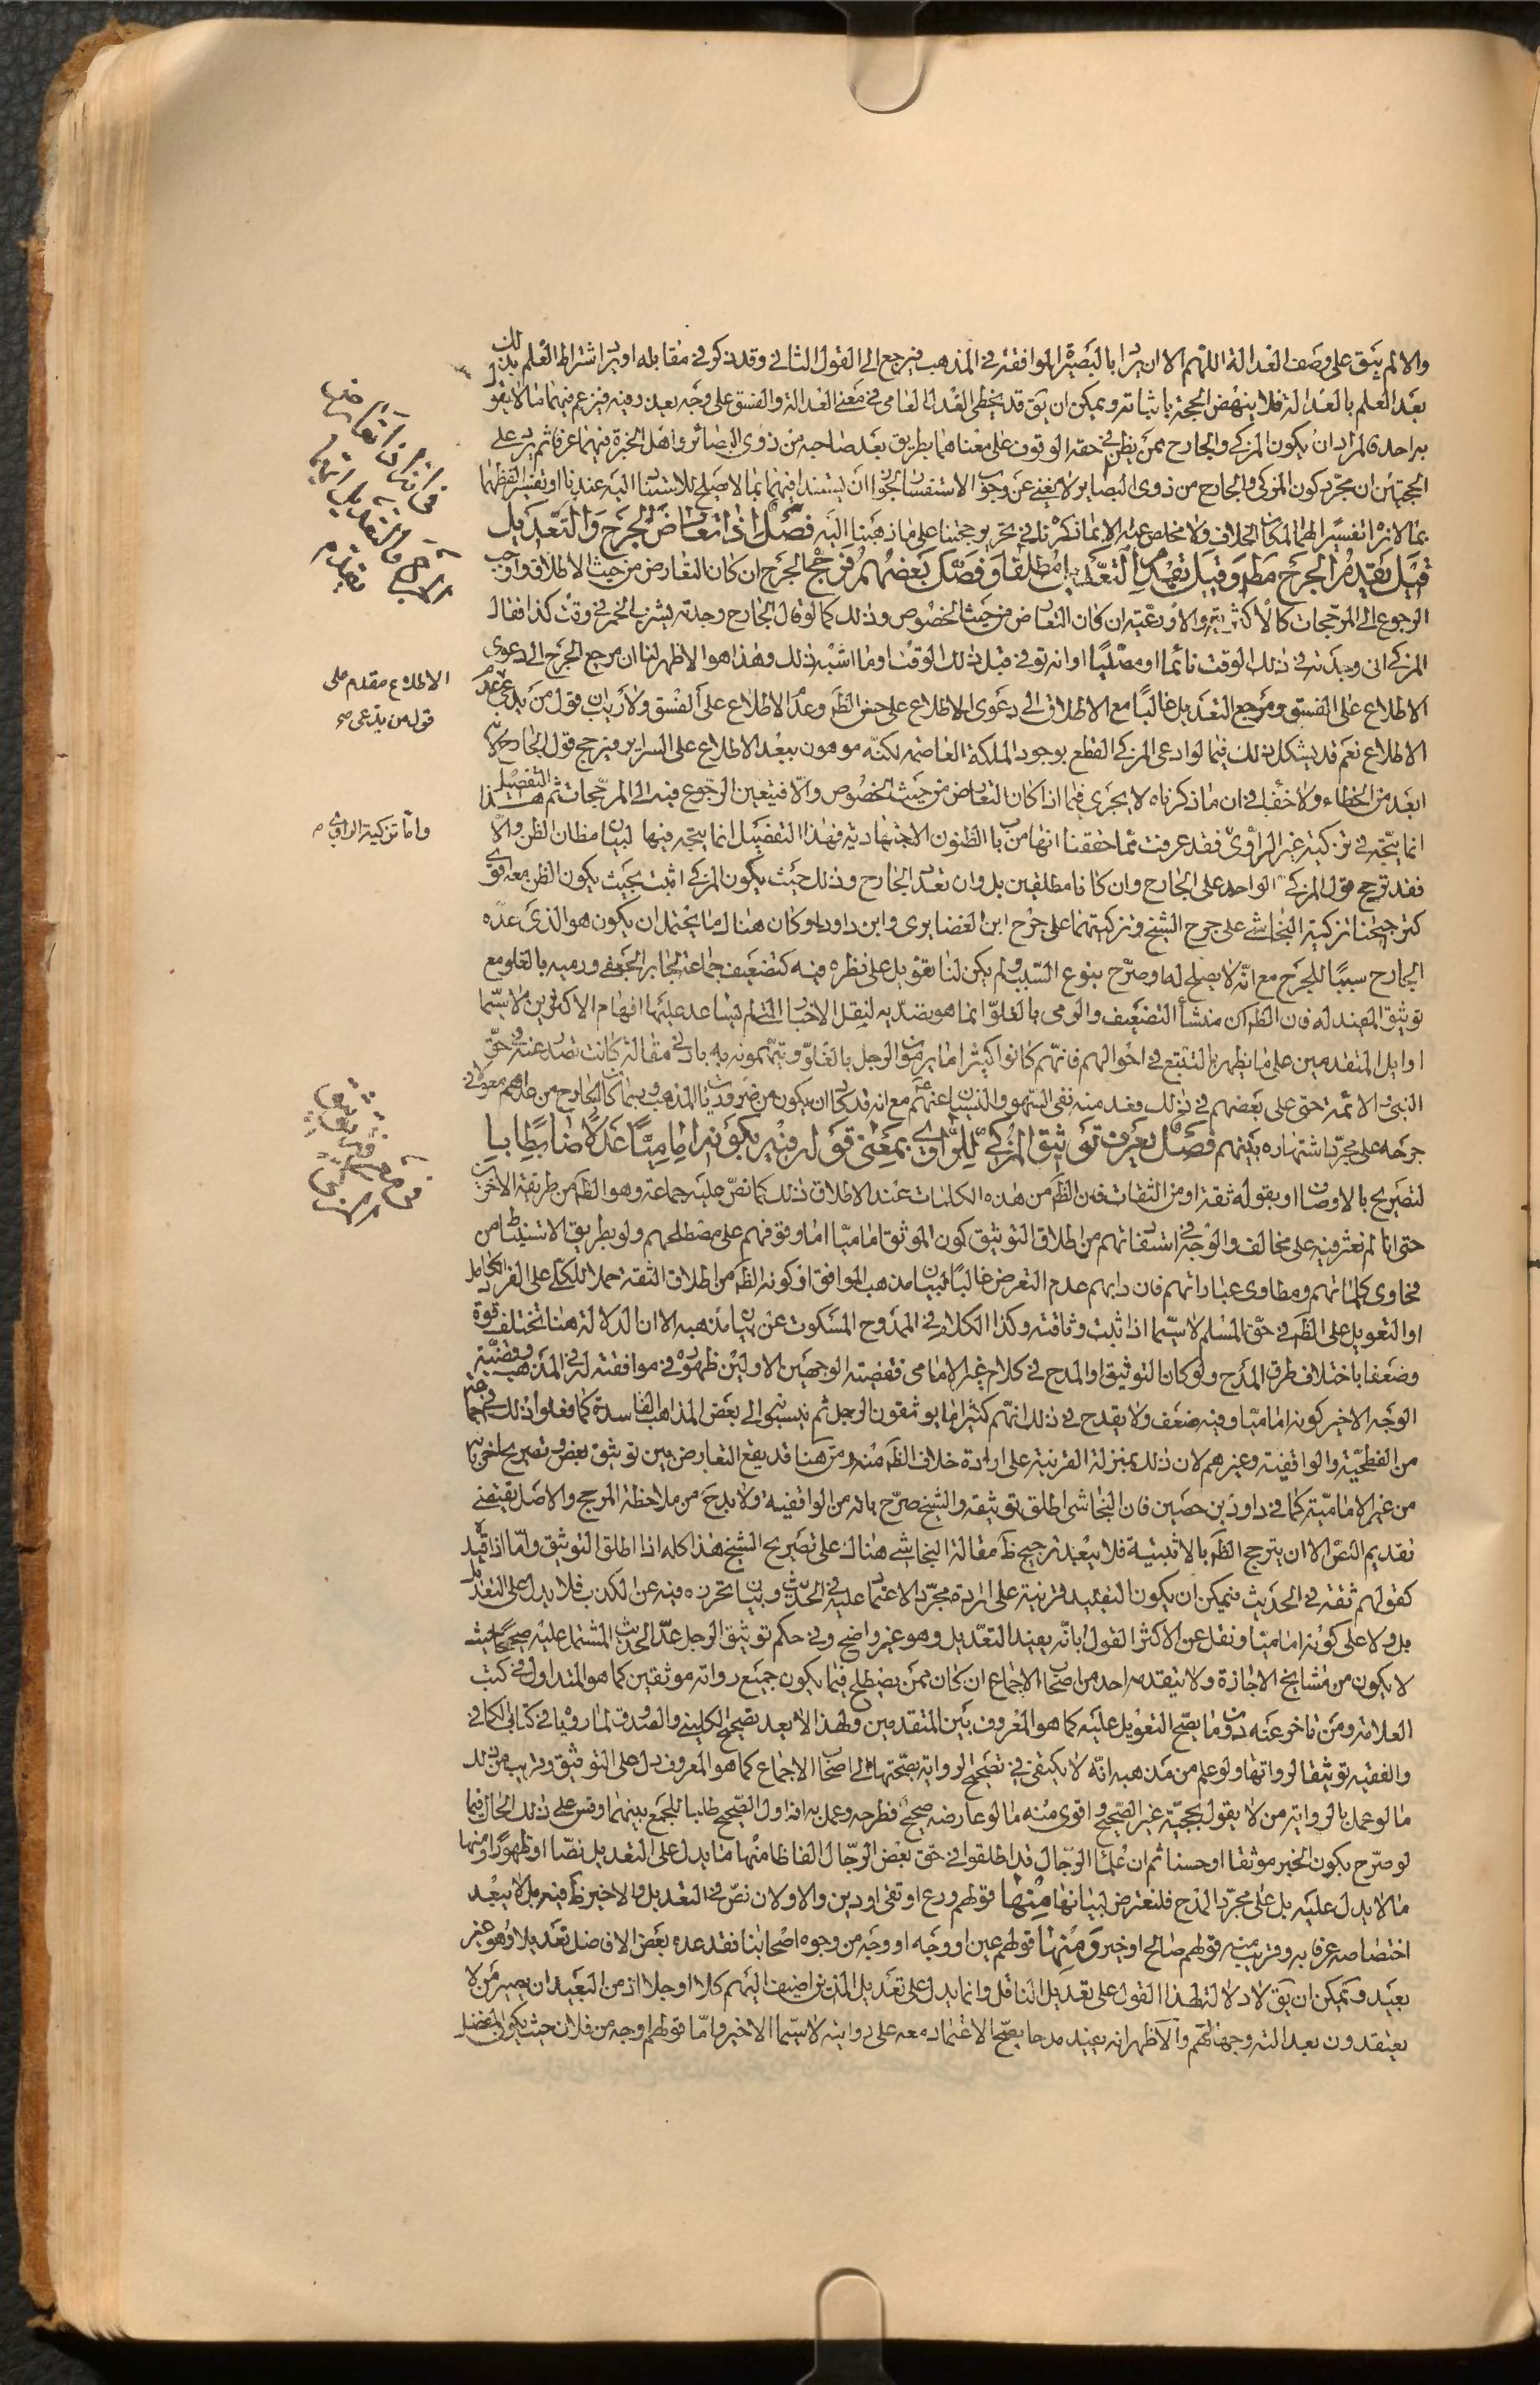 والا لم يبق على وصف العدالة اللهم الا ان يراد بالبصيرة الموافقة فى المذهب فيرجع الى القول الثانى وقد ذكر فى مقابله او يراد اشتراط العلم بذلك
بعد العلم بالعدالة فلا ينهض الحجة باثباته ويمكن ان يق قد يخطى العدل الامامى فى معنى العدالة والفسق على وجه يعذر فيه فيزعم فيهما ما لا يقول
به احد فالمراد ان يكون المزكى والجارح ممن يظن فى حقه الوقوف على معناهما بطريق يعد صاحبه من ذوى البصائر واهل الخبرة فيهما عرفا ثم يرد على
الحجتين ان مجرد كون المزكى والجارح من ذوى البصاير لا يغنى عن وجوب الاستفسار لجواز ان يستند فيهما بما لا يصلح للاستناد اليه عندنا او تفسير لفظهما
بما لا نراه تفسيرا لهما لمكان الخلاف ولا مخلص عنه الا بما ذكرناه فى تحرير حجتنا على ما ذهبنا اليه فصل اذا تعارض الجرح والتعديل
قيل يقدم الجرح مطلقا وقيل يقدم التعديل مطلقا وفصل بعضهم فرجح الجرح ان كان التعارض من حيث الاطلاق واوجب
الرجوع الى المرجحات كالاكثرية والاورعية ان كان التعارض من حيث الخصوص وذلك كما لو قال الجارح وجدته يشرب الخمر فى وقت كذا فقال
المزكى انى وجدته فى ذلك الوقت نائما او مصليا او انه توفى قبل ذلك الوقت او ما اشبه ذلك وهذا هو الاظهر لنا ان مرجع الجرح الى دعوى
الاطلاع على الفسق ومرجع التعديل غالبا مع الاطلاق الى دعوى الاطلاع على حسن الظاهر وعدم الاطلاع على الفسق ولا ريب ان قول من يدعى عدم
الاطلاع نعم قد يشكل ذلك فيما لو ادعى المزكى القطع بوجود الملكة العاصمة لكنه موهون ببعد الاطلاع على السراير فيرجح قول الجارح لانه
ابعد من الخطاء ولا خفاء فى ان ما ذكرناه لا يجرى فيما اذا كان التعارض من حيث الخصوص والا فيتعين الرجوع فيه الى المرجحات ثم هذا التفصيل
انما يتجه فى تزكية غير الراوى فقد عرفت مما حققنا انها من باب الظنون الاجتهادية فهذا التفصيل انما يتجه فيها لبيان مظان الظن والا
فقد ترجح قول المزكى الواحد على الجارح وان كانا مطلقين بل وان تعدد الجارح وذلك حيث يكون المزكى اثبت بحيث يكون الظن معه اقوى
كترجيحنا تزكية النجاشى على جرح الشيخ وتزكيتهما على جرح ابن الغضايرى وابن داود او كان هناك ما يحتمل ان يكون هو الذى عده
الجارح سببا للجرح مع انه لا يصلح له او صرح بنوع السبب ولم يكن لنا تعويل على نظره فيه كتضعيف جماعة لجابر الجعفى ورميه بالغلو مع
توثيق المفيد له فان الظاهر ان منشأ التضعيف والرمى بالغلو انما هو تصديه لنقل الاخبار التى لم تساعد عليها افهام الاكثرين لا سيما
اوايل المتقدمين على ما يظهر بالتتبع فى احوالهم فانهم كانوا كثيرا ما يرمون الرجل بالغلو ويتهمونه به بادنى مقالة كانت تصدر عنه فى حق
النبى ص والائمة حتى على بعضهم فى ذلك وعد منه نفى السهو والنسيان عنهم مع انه قد كاد ان يكون من ضروريات المذهب وربما كان الجارح من عداهم معولا فى
جرحه على مجرد اشتهاره بينهم فصل يعرف توثيق المزكى للراوى بمعنى قوله فيه بكونه اماميا عدلا ضابطا بال
لتصريح بالاوصاف او بقوله ثقة او من الثقات فان الظاهر من هذه الكلمات عند الاطلاق ذلك كما نص عليه جماعة وهو الظاهر من طريقة الاخرين
حتى انا لم نعثر فيه على مخالف والوجه فى استفادتهم من اطلاق التوثيق كون الموثق اماميا اما وقوفهم على مصطلحهم ولو بطريق الاستنباط من
فحاوى كلماتهم ومطاوى عباداتهم فان دابهم عدم التعرض غالبا لبيان مذهب الموافق او كونه الظاهر من اطلاق الثقة حملا للكلى على الفرد الكامل
او التعويل على الظاهر فى حق المسلم لا سيما اذا ثبت وثاقته وكذا الكلام فى الممدوح المسكوت عن بيان مذهبه الا ان الدلالة هنا تختلف قوة
وضعفا باختلاف طرق المدح ولو كان التوثيق او المدح فى كلام غير الامامى فقضية الوجهين الاولين ظهوره فى موافقته له فى المذهب وقضية
الوجه الاخير كونه اماميا وفيه ضعف ولا يقدح فى ذلك انهم كثيرا ما يوثقون الرجل ثم ينسبونه الى بعض المذاهب الفاسدة كما فعلوا ذلك فى حق جماعة
من الفطحية والواقفية وغيرهم لان ذلك بمنزلة القرينة على ارادة خلاف الظاهر منه ومن هنا قد يقع التعارض بين توثيق بعض وتصريح اخر بانه
من غير الامامية كما فى داود بن حصين فان النجاشى اطلق توثيقه والشيخ صرح بانه من الواقفية ولا بد ح من ملاحظة المرجح والاصل يقتضى
تقديم النص الا ان يترجح الظاهر بالاثبتية فلا يبعد ترجيح ظ مقالة النجاشى هناك على تصريح الشيخ هذا كله اذا اطلق التوثيق واما اذا قيد
كقولهم ثقة فى الحديث فيمكن ان يكون التقييد قرينة على ارادة مجرد الاعتماد عليه فى الحديث وبيان تحرزه فيه عن الكذب فلا يدل على التعديل
بل ولا على كونه اماميا ونقل عن الاكثر القول بانه يفيد التعديل وهو غير واضح وفى حكم توثيق الرجل عد الحديث المشتمل عليه صحيحا حيث
لا يكون من مشايخ الاجازة ولا يتقدمه احد من اصحاب الاجماع ان كان ممن يصطلح فيما يكون جميع رواته موثقين كما هو المتداول فى كتب
العلامة ومن تاخر عنه دون ما يصح التعويل عليه كما هو المعروف بين المتقدمين ولهذا لا يعد تصحيح الكلينى والصدوق لما روياه فى كتابى الكافى
والفقيه توثيقا لرواتها ولو علم من مذهبه انه لا يكتفى فى تصحيح الرواية بصحتها الى اصحاب الاجماع كما هو المعروف دل على التوثيق وقريب من ذلك
ما لو عمل بالرواية من لا يقول بحجية غير الصحيح واقوى منه ما لو عارضه صحيح فطرحه وعمل به او اول الصحيح طالبا للجمع بينهما وقس على ذلك الحال فيما
لو صرح بكون الخبر موثقا او حسنا ثم ان علماء الرجال قد اطلقوا فى حق بعض الرجال الفاظا منها ما يدل على التعديل نصا او ظهورا ومنها
ما لا يدل عليه بل على مجرد المدح فلنتعرض لبيانها منها قولهم ورع او تقى او دين والاولان نص فى التعديل والاخير ظ فيه بل لا يبعد
اختصاصه عرفا به وقريب منه قولهم صالح او خير ومنها قولهم عين او وجه او وجه من وجوه اصحابنا فقد عده بعض الافاضل تعديلا وهو غير
بعيد ويمكن ان يق لا دلالة لهذا القول على تعديل الناقل وانما يدل على تعديل الذين اضيف اليهم كلا او جلا اذ من البعيد ان يصير من لا
يعتقدون بعدالته وجها لهم والاظهر انه يفيد مدحا يصح الاعتماد معه على روايته لا سيما الاخير واما قولهم اوجه من فلان حيث يكون المفضل
الاطلاع مقدم على
قول من يدعى صح
واما تزكية الراوى